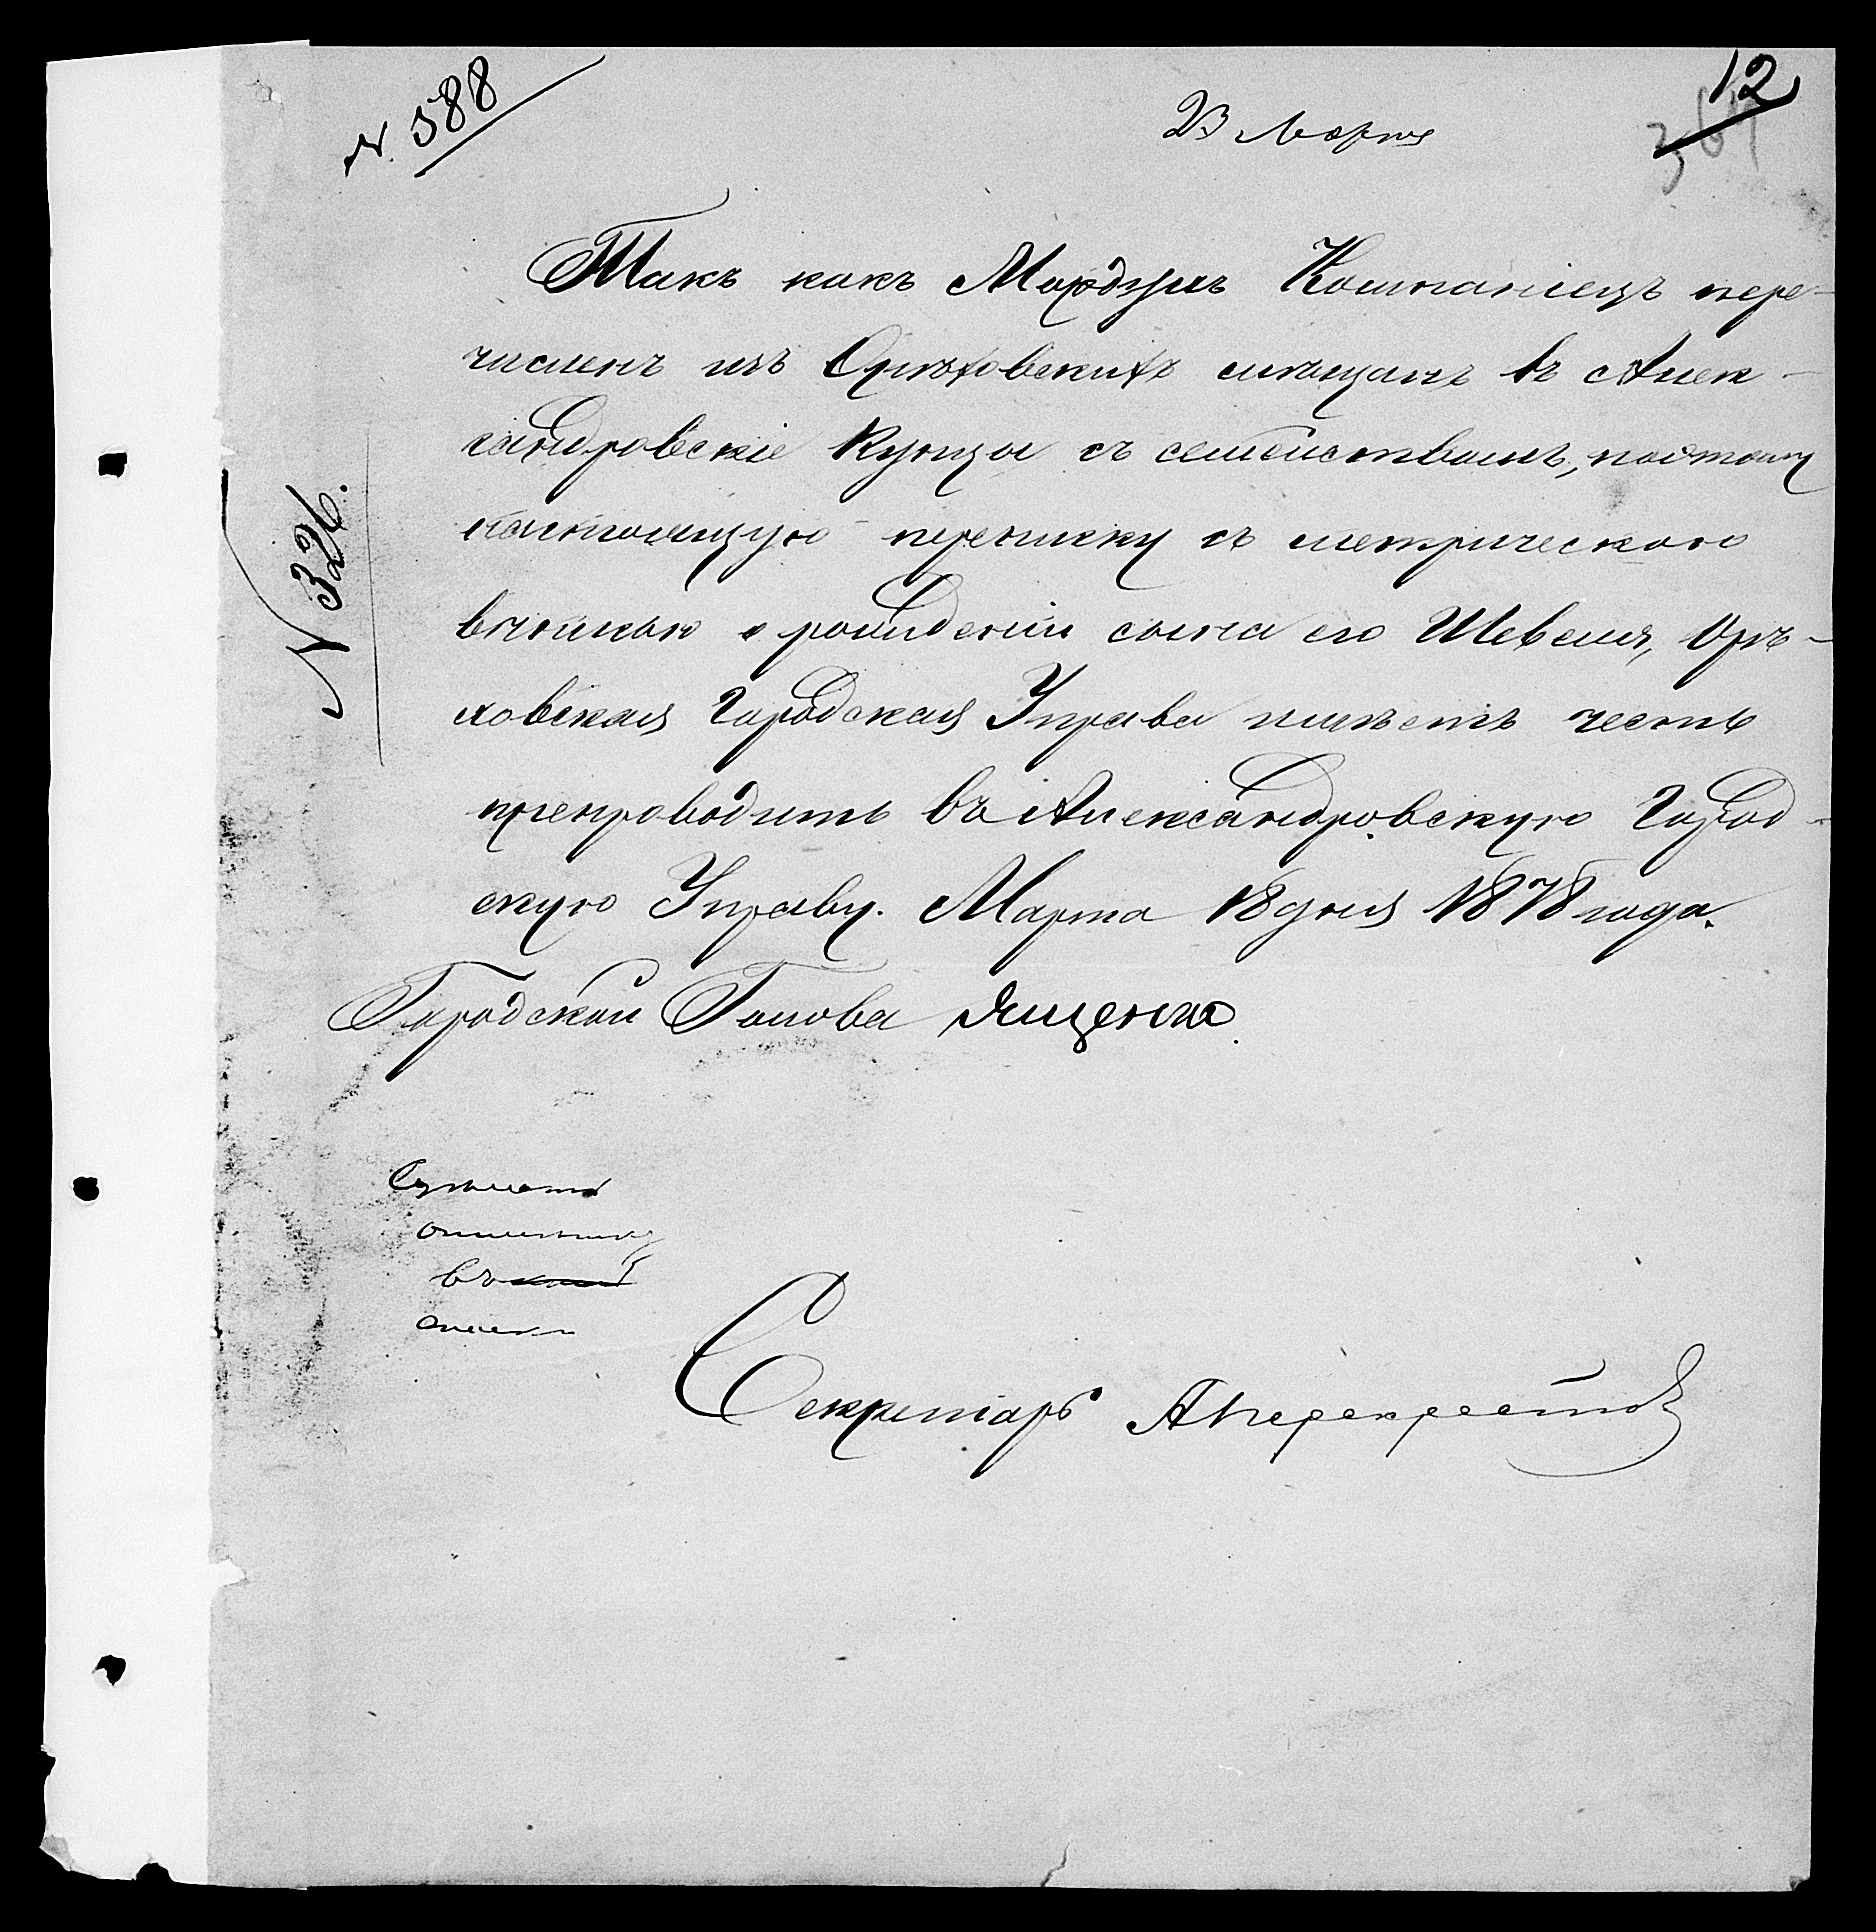 12
N. 588
23 Марта
367
Такъ какъ Мордухъ Компаніецъ пере-
численъ изъ Орѣховскихъ мѣщанъ въ Алек-
сандровскіе Купцы съ семействомъ, поэтому
настоящую переписку съ метрическою
выписью о рожденіи сына его Шевеля, Орѣ-
ховская Городская Управа имѣетъ честь
препроводить въ Александровскую Город-
скую Управу. Марта 18 дня 1878 года.
N 326.
Городской Голова Ященко.
въ
Секретарь А Перекрестовъ